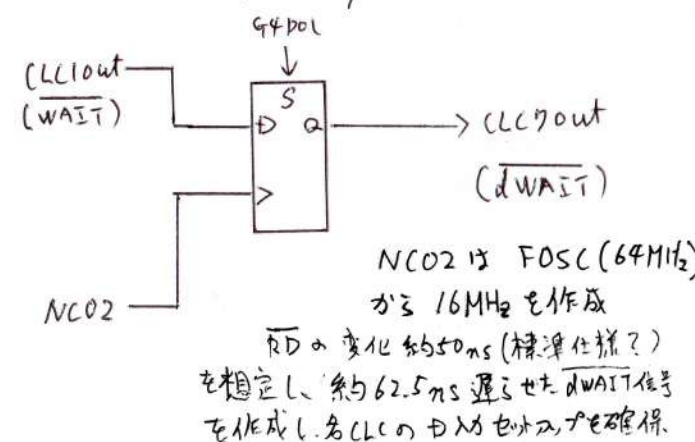 G4POL
CLC1out
(WAIT)
S
D Q
CLC7out
(dWAIT)
NCO2
NCO2は FOSC(64MHz)
から 16MHzを作成
RDの変化 約50ns(標準仕様?)
を想定し、約62.5ns遅らせたdWAIT信号
を作成し、各CLCのD入力セットアップを確保.